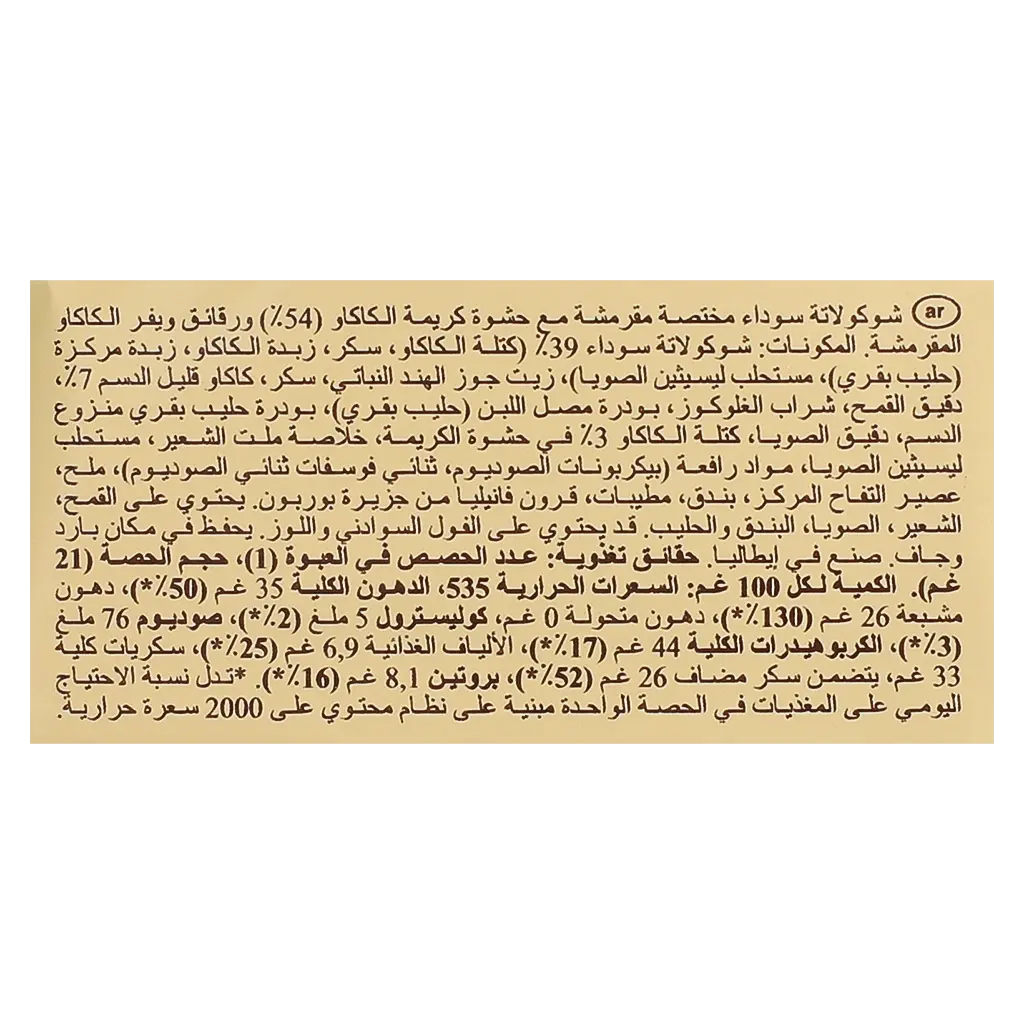 ar شوكولاتة سوداء مختصة مقرمشة مع حشوة كريمة الكاكاو (54٪) ورقائق ويفر الكاكاو
المقرمشة. المكونات: شوكولاتة سوداء 39٪ (كتلة الكاكاو، سكر، زبدة الكاكاو، زبدة مركزة
(حليب بقري)، مستحلب ليسيثين الصويا)، زيت جوز الهند النباتي، سكر، كاكاو قليل الدسم 7٪،
دقيق القمح، شراب الغلوكوز، بودرة مصل اللبن (حليب بقري)، بودرة حليب بقري منزوع
الدسم، دقيق الصويا، كتلة الكاكاو 3٪ في حشوة الكريمة، خلاصة ملت الشعير، مستحلب
ليسيثين الصويا، مواد رافعة (بيكربونات الصوديوم، ثنائي فوسفات ثنائي الصوديوم)، ملح،
عصير التفاح المركز، بندق، مطيبات، قرون فانيليا من جزيرة بوربون. يحتوي على القمح،
الشعير، الصويا، البندق والحليب. قد يحتوي على الفول السوادني واللوز. يحفظ في مكان بارد
وجاف. صنع في إيطاليا. حقائق تغذوية: عدد الحصص في العبوة (1)، حجم الحصة (21
غم). الكمية لكل 100 غم: السعرات الحرارية 535، الدهون الكلية 35 غم (50٪*)، دهون
مشبعة 26 غم (130٪*)، دهون متحولة 0 غم، كوليسترول 5 ملغ (2٪*)، صوديوم 76 ملغ
(3٪*)، الكربوهيدرات الكلية 44 غم (17٪*)، الألياف الغذائية 6,9 غم (25٪*)، سكريات كلية
33 غم، يتضمن سكر مضاف 26 غم (52٪*)، بروتين 8,1 غم (16٪*). *تدل نسبة الاحتياج
اليومي على المغذيات في الحصة الواحدة مبنية على نظام محتوي على 2000 سعرة حرارية.